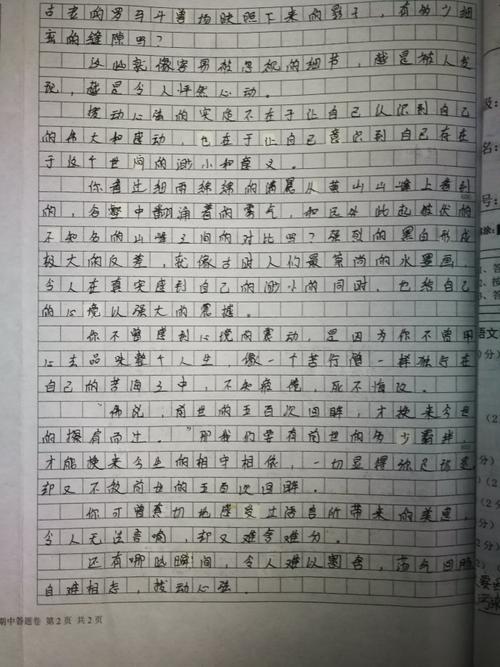 古老的罗马斗兽场映照下来的影子，有多少细
密的缝隙吗？
这些就像容易被忽视的细节，越是被人发
现，越是令人怦然心动。
拨动心弦的实质不在于让自己认识到自己
的伟大和感动，也在于让自己意识到自己存在
于这个世间的渺小和意义。
你看过细雨绵绵的清晨从黄山山峰上看到
的，谷壑中翻涌着的雾气，和远处此起彼伏的
不知名的山峰之间的对比吗？强烈的黑白形成
极大的反差，就像古时人们最崇尚的水墨画，
令人在真实感到自己的渺小的同时，也给自己
的心境以强大的震撼。
你不曾感到心境的震动，是因为你不曾用
心去品味整个人生，像一个苦行僧一样独行在
自己的苦海之中，不知疲倦，死不悔改。
“佛说，前世的五百次回眸，才换来今世
的擦肩而过。”那我们要有前世的多少羁绊，
才能换来今生的相守相依，一切显得弥足珍贵
却又不敌前世的五百次回眸。
你可曾真切地感受过语言所带来的美感，
令人无法言喻，却又难舍难分。
还有哪些瞬间，令人难以割舍，荡气回肠
自难相忘，拨动心弦。
期中答题卷 第2页 共2页
语文